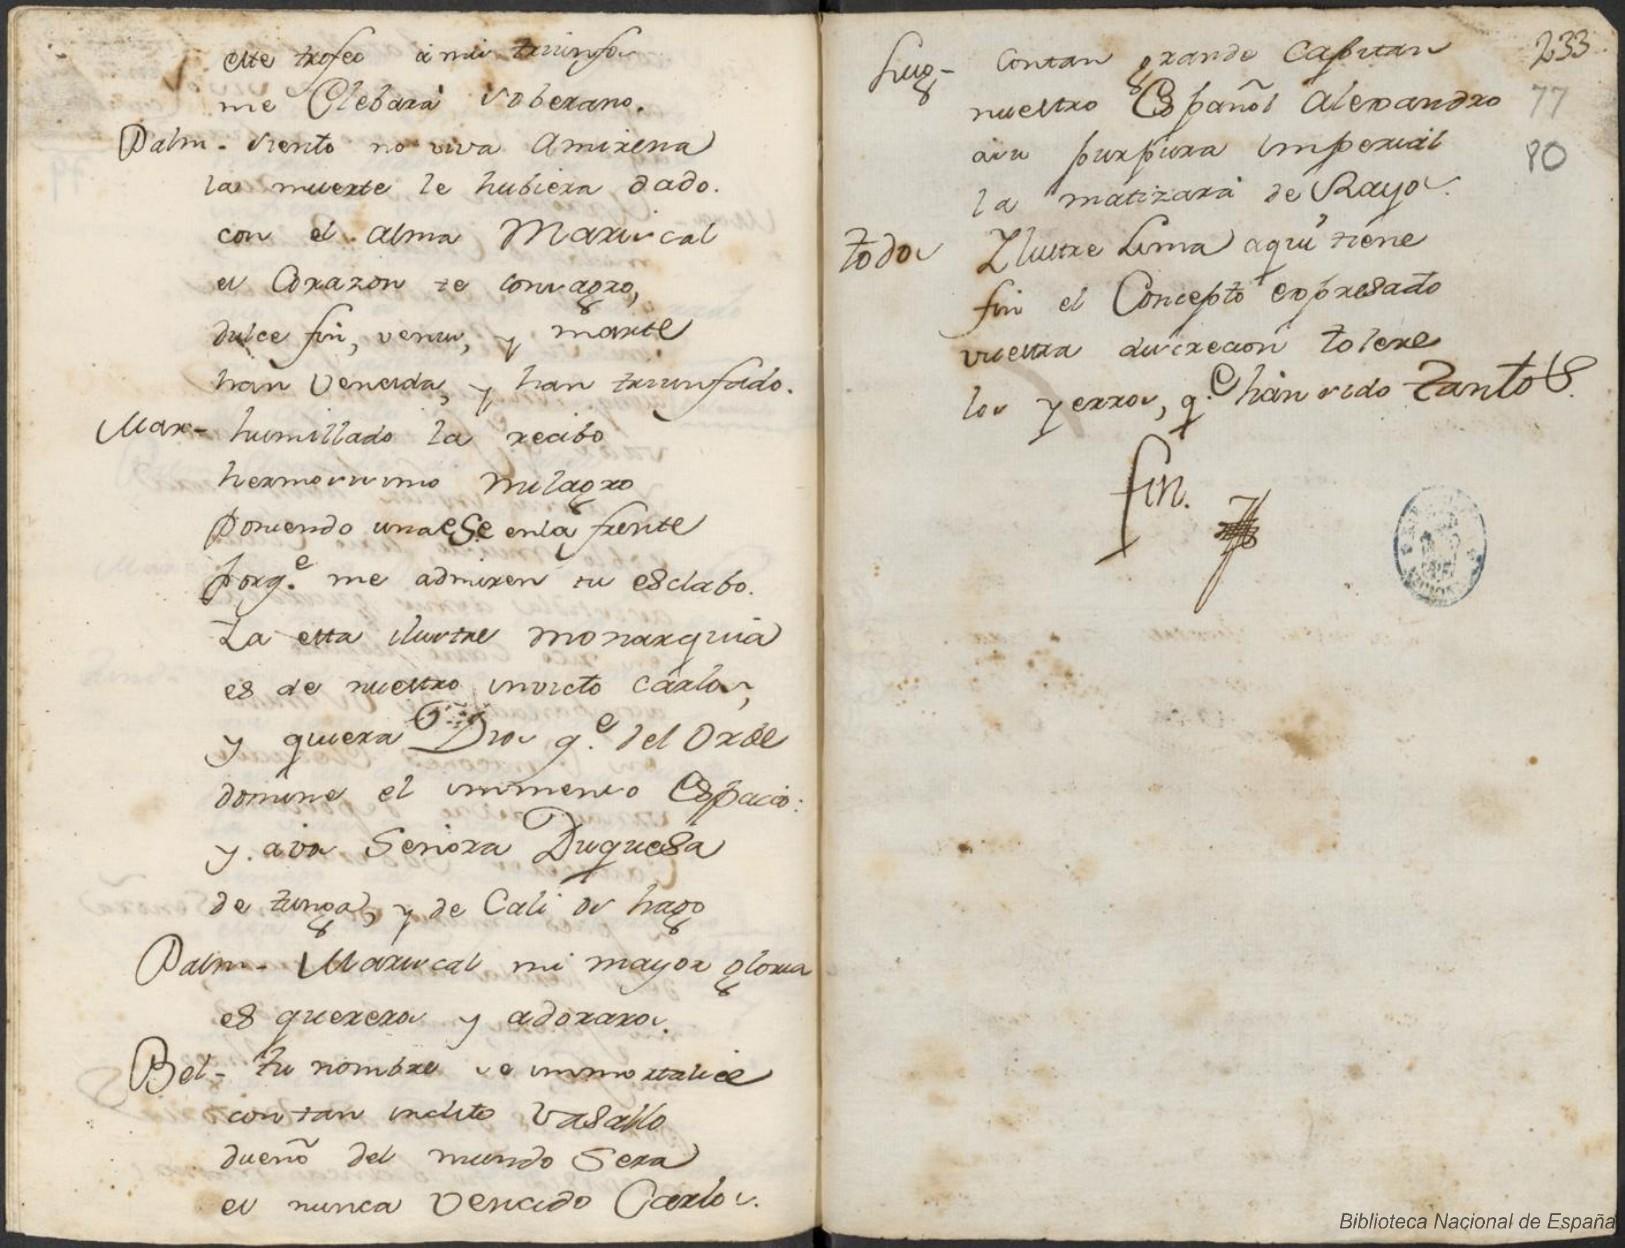 este trofeo á mis triunfos
me Elebará soberano.
Palm - siento no viva Amirena
la muerte le hubiera dado.
con el alma Mariscal
el Corazon te consagro,
dulce fin, venus, y marte
han vencida, y han triunfado.
Mar - humillado la recibo
hermosissimo milagro
Poniendo una eSe en la frente
porq.e me admiren tu esclabo.
Ya esta ilustre monarquia
es de nuestro invicto carlos,
y quiera Dios q.e del Orbe
domine el immenso Espacio:
y. a vos Señora Duquesa
de tunga, y de Cali os hago
Palm - Mariscal mi mayor gloria
es quereros y adoraros.
Bel - tu nombre se immortalice
con tan inclito vasallo
dueño del mundo Sera
el nunca vencido Carlos.
233
77
80
Lug - Con tan grande Capitan
nuestro Español Alexandro
a su purpura imperial
la matizará de Rayos.
todos Ylustre Lima aqui tiene
fin el Concepto expresado
vuestra discrecion tolere
los yerros, q.e hán sido Tantos.
fin.
Biblioteca Nacional de España